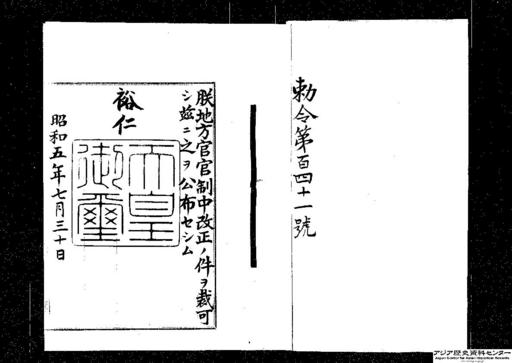 勅令第百四十一號
朕地方官官制中改正ノ件ヲ裁可
シ茲ニ之ヲ公布セシム
裕仁
天皇
御璽
昭和五年七月三十日
アジア歴史資料センター
Japan Center for Asian Historical Records